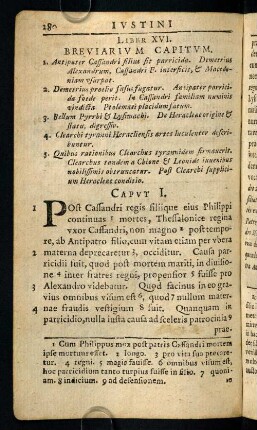 280 IVSTINI
LIBER XVI.
BREVIARIVM CAPITVM.
1. Antipater Cassandri filius fit parricida. Demetrius
Alexandrum, Cassandri F. interficit, & Macedo-
niam usurpat.
2. Demetrius prælio fusus fugatur. Antipater parrici-
da fœde perit. In Cassandri familiam numinis
vindicta Ptolemæi placidum fatum.
3. Bellum Pyrrhi & Lysimachi. De Heracleæ origine &
statu, digressio.
4. Clearchi tyranni Heracliensis artes luculenter descri-
buntur.
5. Quibus rationibus Clearchus tyrannidem firmaverit.
Clearchus tandem a Chione & Leonide iuvenibus
nobilissimis obtruncatur. Post Clearchi supplici-
um Heracleæ conditio.
CAPVT I.
1 POst Cassandri regis filiique eius Philippi
continuas 1 mortes, Thessalonice regina
vxor Cassandri, non magno 2 post tempo-
re, ab Antipatro filio, cum vitam etiam per vbera
2 materna deprecaretur 3, occiditur. Causa par-
ricidii fuit, quod post mortem mariti, in divisio-
ne 4 inter fratres regni, propensior 5 fuisse pro
3 Alexandro videbatur. Quod facinus in eo gra-
vius omnibus visum est 6, quod 7 nullum mater-
4 næ fraudis vestigium 8 fuit. Quanquam in
parricidio, nulla iusta causa ad sceleris patrocinia 9
præ-
1 Cum Philippus mox post patris Cassandri mortem
ipse mortuus esset. 2 longo. 3 pro vita sua precare-
tur. 4 regni. 5 magis favisse. 6 omnibus visum est,
hoc parricidium tanto turpius fuisse in filio. 7 quoni-
am. 8 indicium. 9 ad defensionem.